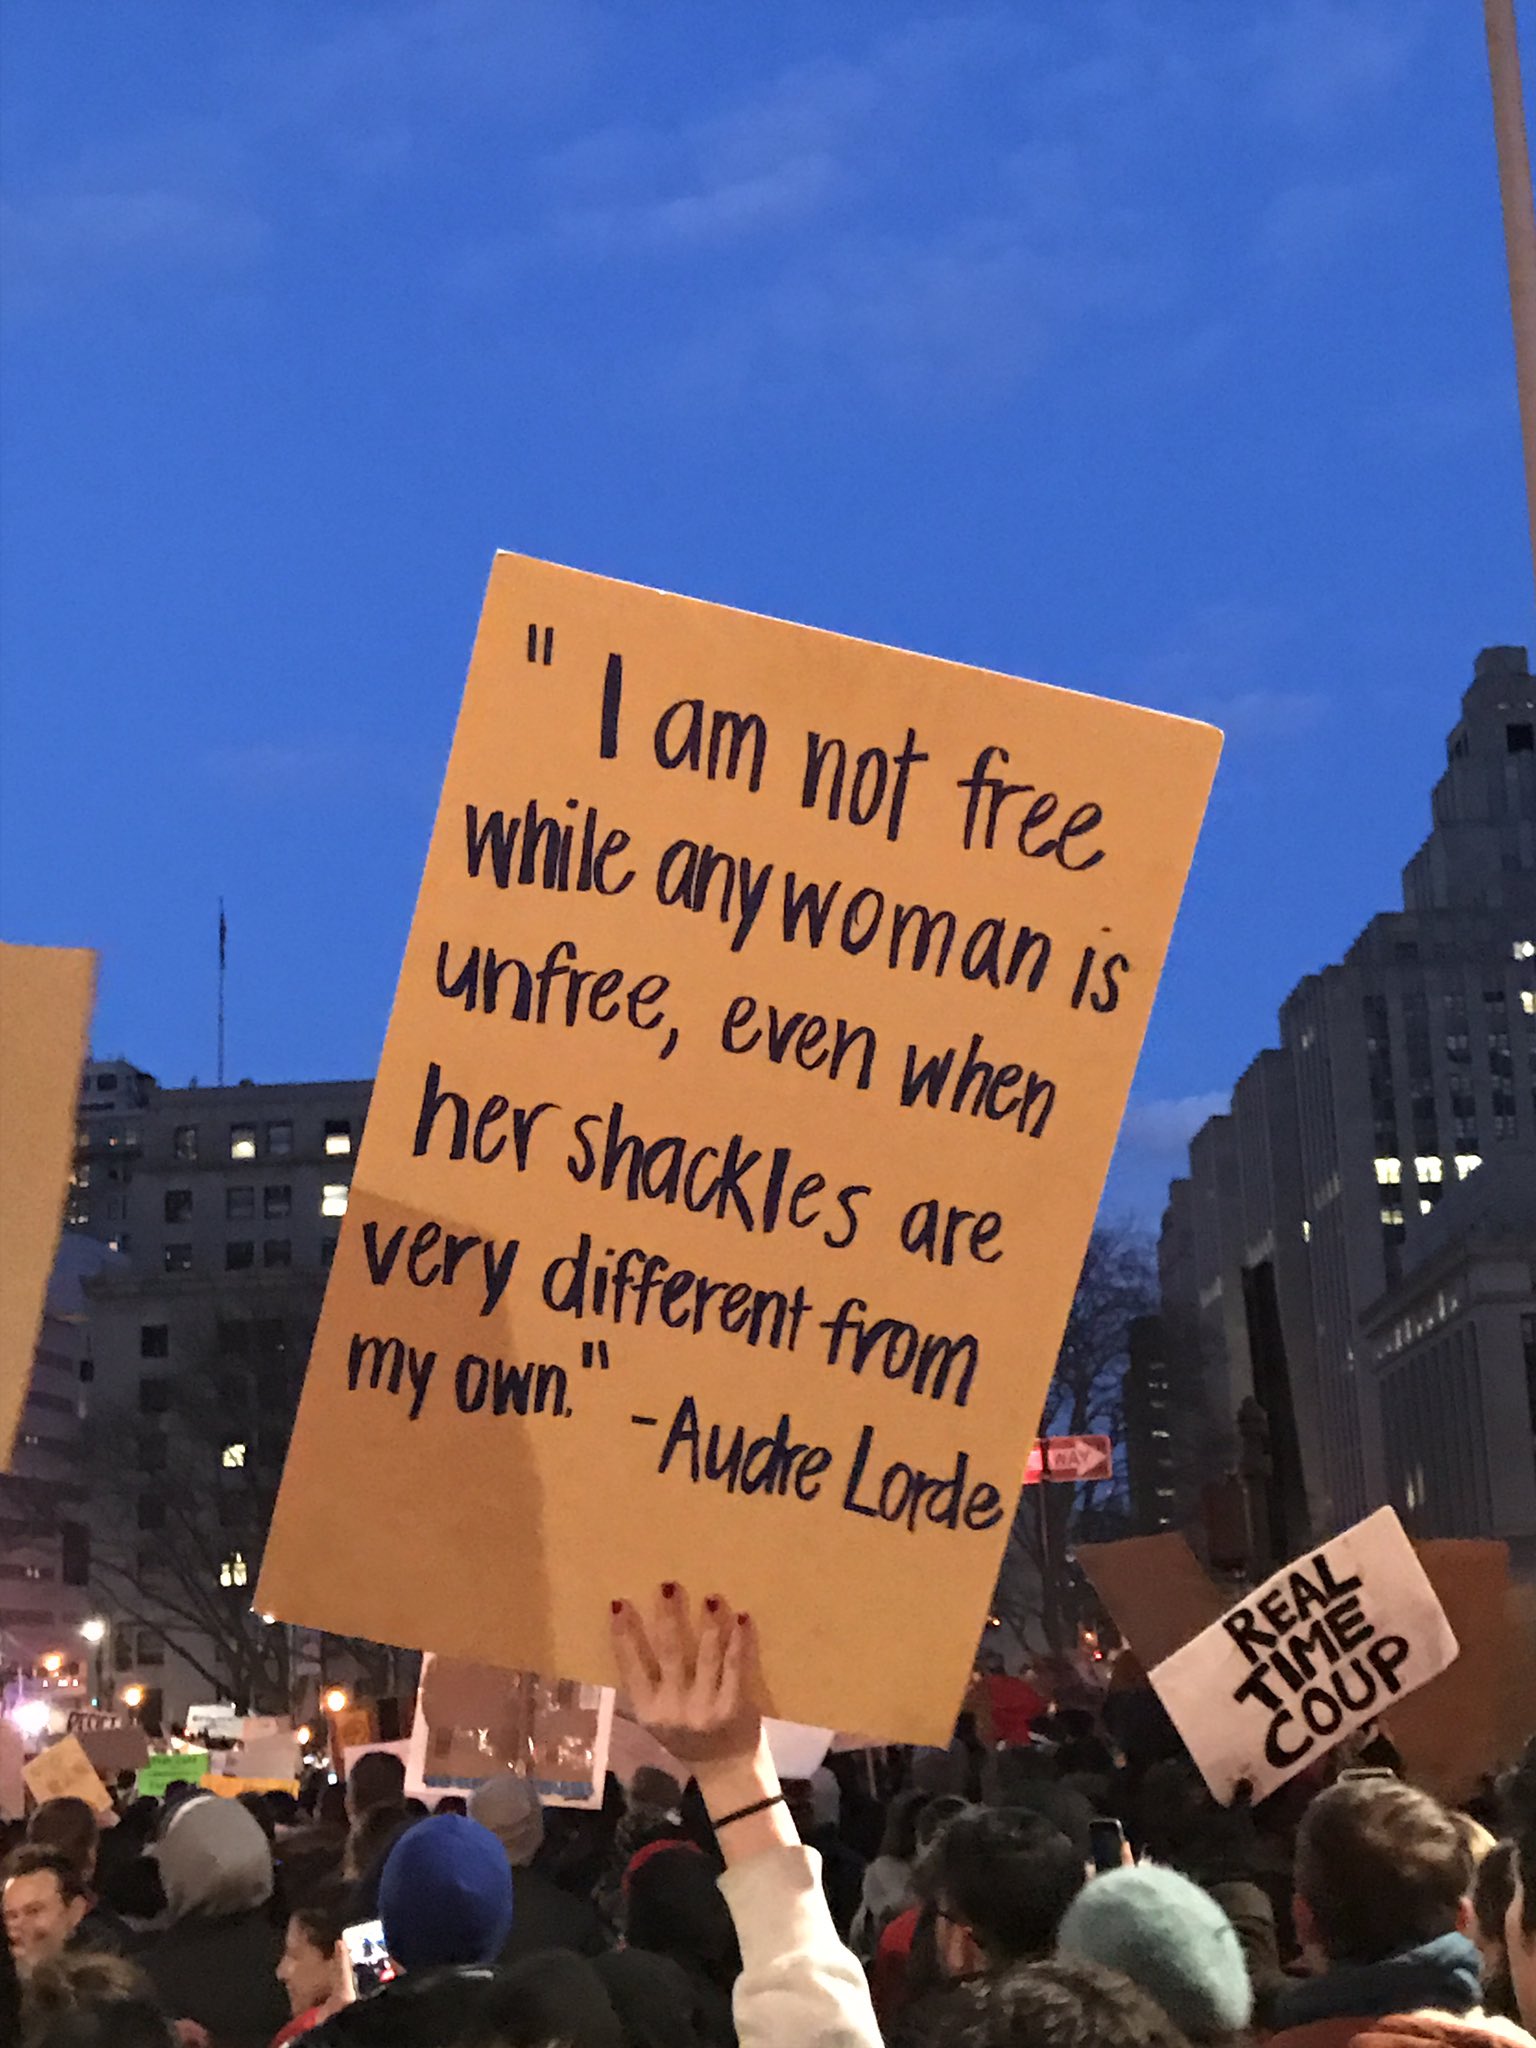 " I am not free
while any woman is
unfree, even when
her shackles are
very different from
my own." -Audre Lorde
WAY
REAL
TIME
COUP